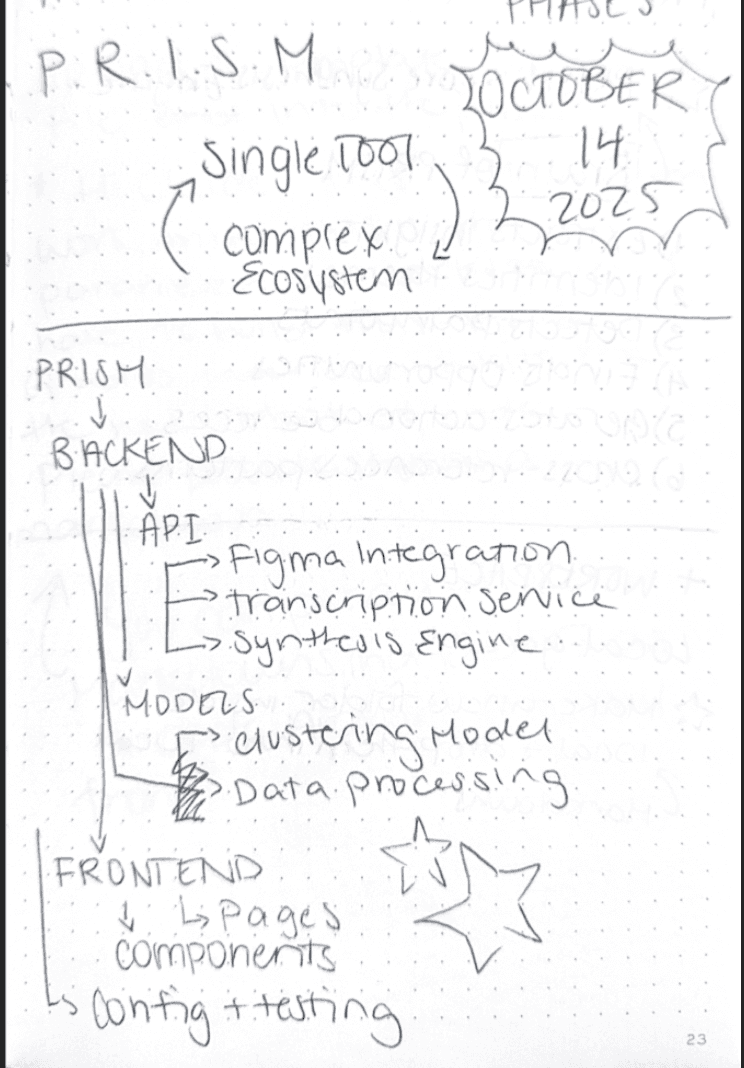 PHASES
PRISM
OCTOBER
14
2025
Single Tool
complex
Ecosystem
PRISM
BACKEND
API
Figma Integration
transcription service
Synthesis Engine
MODELS
Clustering Model
Data processing
FRONTEND
Pages
components
Config + testing
23